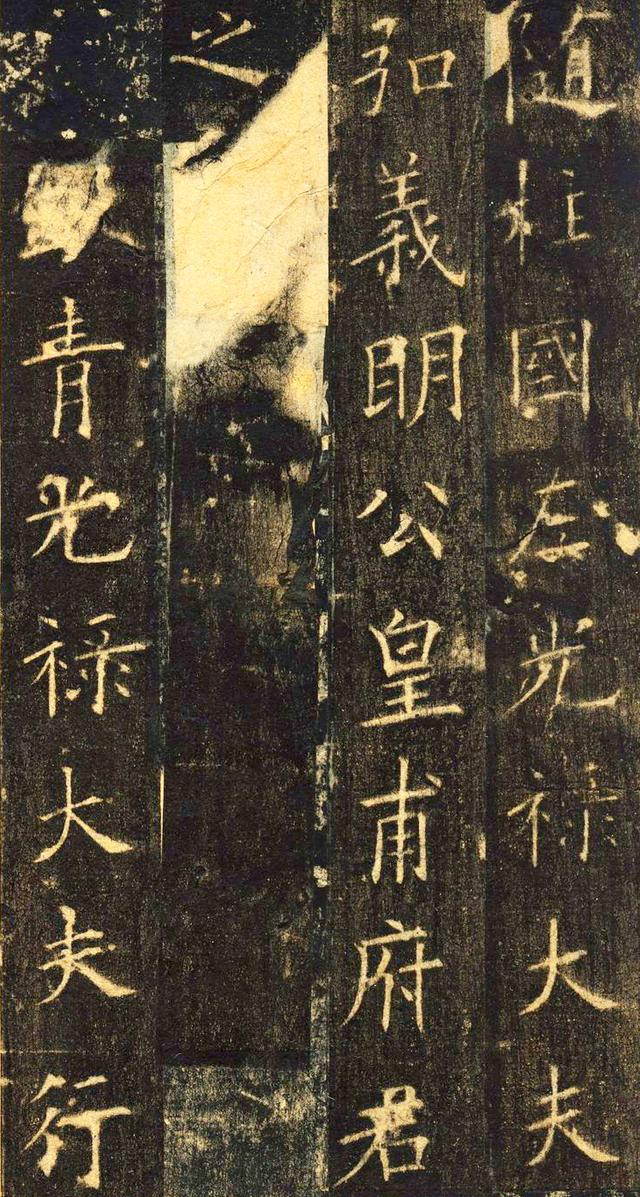 隨柱國左光祿大夫
弘義明公皇甫府君
之
青光祿大夫行